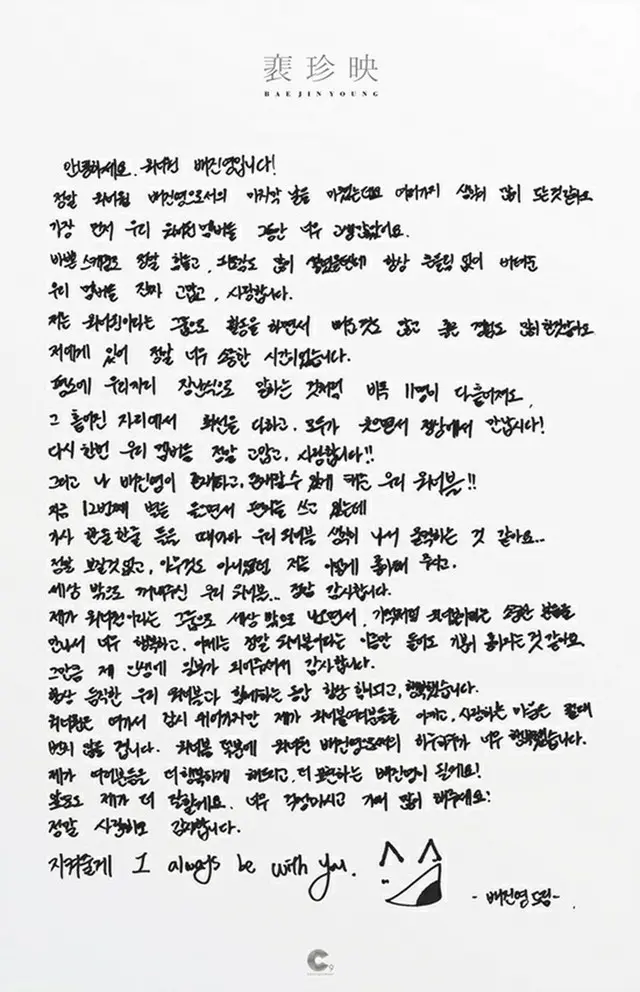 裵珍映
BAEJINYOUNG
안녕하세요. 워너원 배진영입니다!
정말 워너원 배진영으로서의 마지막 날을 마쳤는데요 여러가지 생각이 많이 드는것같아요
가장 먼저 우리 워너원 멤버들 그동안 너무 고생많았어요.
바쁜 스케줄도 정말 많고, 많이 항상 흔들림 없이 버텨준
우리 멤버들 진짜 고맙고, 사랑합니다.
저는 워너원이라는 그룹으로 활동을 하면서 배운것도 많고 좋은 경험도 많이한것같아요
저에게 있어 정말 너무 소중한 시간이었습니다.
평소에 우리끼리 장난식으로 말하는 것처럼 비록 11명이 다 흩어져도,
그 흩어진 자리에서 최선을 다하고, 모두가 웃으면서 정상에서 만납시다!
다시 한번 우리 멤버들 정말 고맙고, 사랑합니다!!
그리고 나 배진영이 존재하고, 존재할 수 있게 해준 우리 워너블!!
지금 12번째 별을 들으면서 편지를 쓰고 있는데
가사 한줄한줄 들을 때마다 우리 워너블 생각이 나서 울컥하는 것 같아요..
정말 보잘것없고, 아무것도 아니었던 저를 이렇게 좋아해 주시고,
세상 밖으로 꺼내주신 우리 워너블... 정말 감사합니다.
제가 워너원이라는 그룹으로 세상 밖으로 나오면서, 기적처럼 워너블이라는 소중한 분들을
만나서 너무 행복하고, 이제는 정말 워너블이라는 이름만 들어도 기분이 좋아지는것 같아요
그만큼 제 인생에 일부가 되어주셔서 감사합니다.
항상 움직한 우리 워너블과 함께하는 동안 항상 힘이되고, 행복했습니다.
워너원은 여기서 잠시 쉬어가지만 제가 워너블여러분들을 아끼고, 사랑하는 마음은 절대
변치 않을 겁니다. 워너블 덕분에 워너원 배진영으로서의 하루하루가 너무 행복했습니다.
제가 여러분들을 더 행복하게 해드리고, 더 보답하는 배진영이 될게요!
앞으로도 제가 더 잘할게요. 너무 걱정마시고 기대 많이 해주세요!
정말 사랑하고 감사합니다.
지켜줄게 I always be with you.
-배진영 드림-
C9